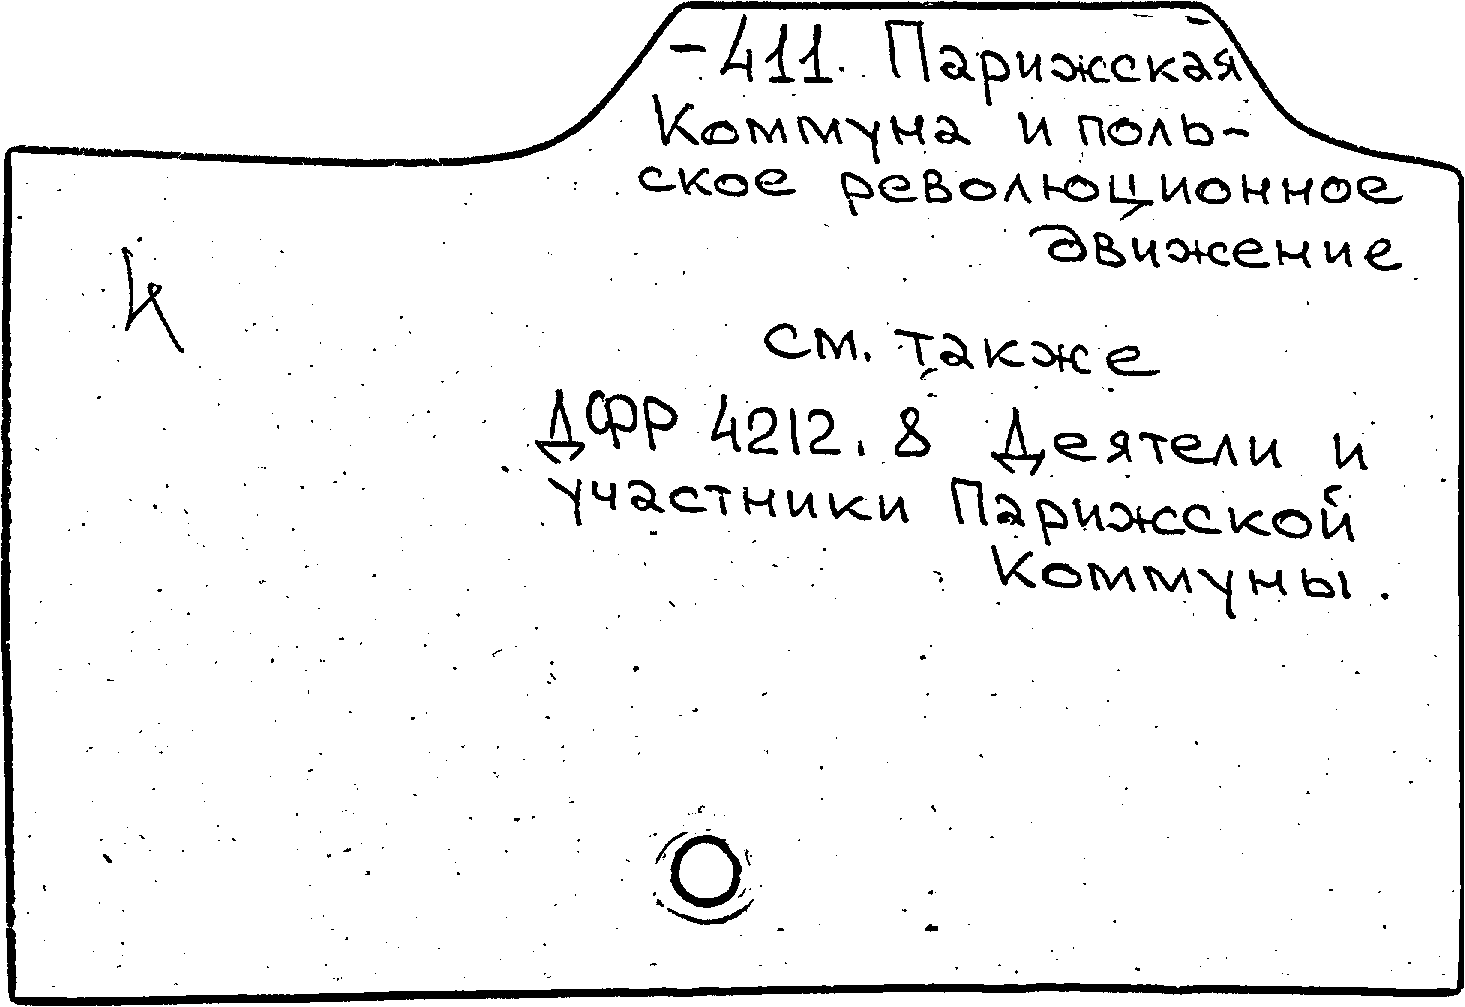 -411. Парижская
Коммуна и поль-
ское революционное
движение
К
см. также
ДФР 4212.8 Деятели и
участники Парижской
Коммуны.